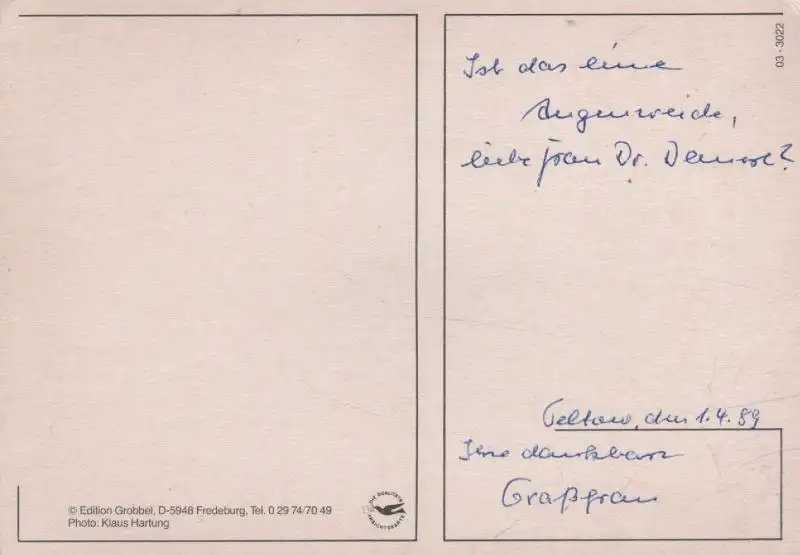 © Edition Grobbel, D-5948 Fredeburg, Tel. 0 29 74/70 49
Photo: Klaus Hartung
DIE QUALITÄTS
ANSICHTSKARTE
03 - 3022
Ist das eine
Augenweide,
liebe Frau Dr.
Teltow, den 1.4.89
Ihre dankbare